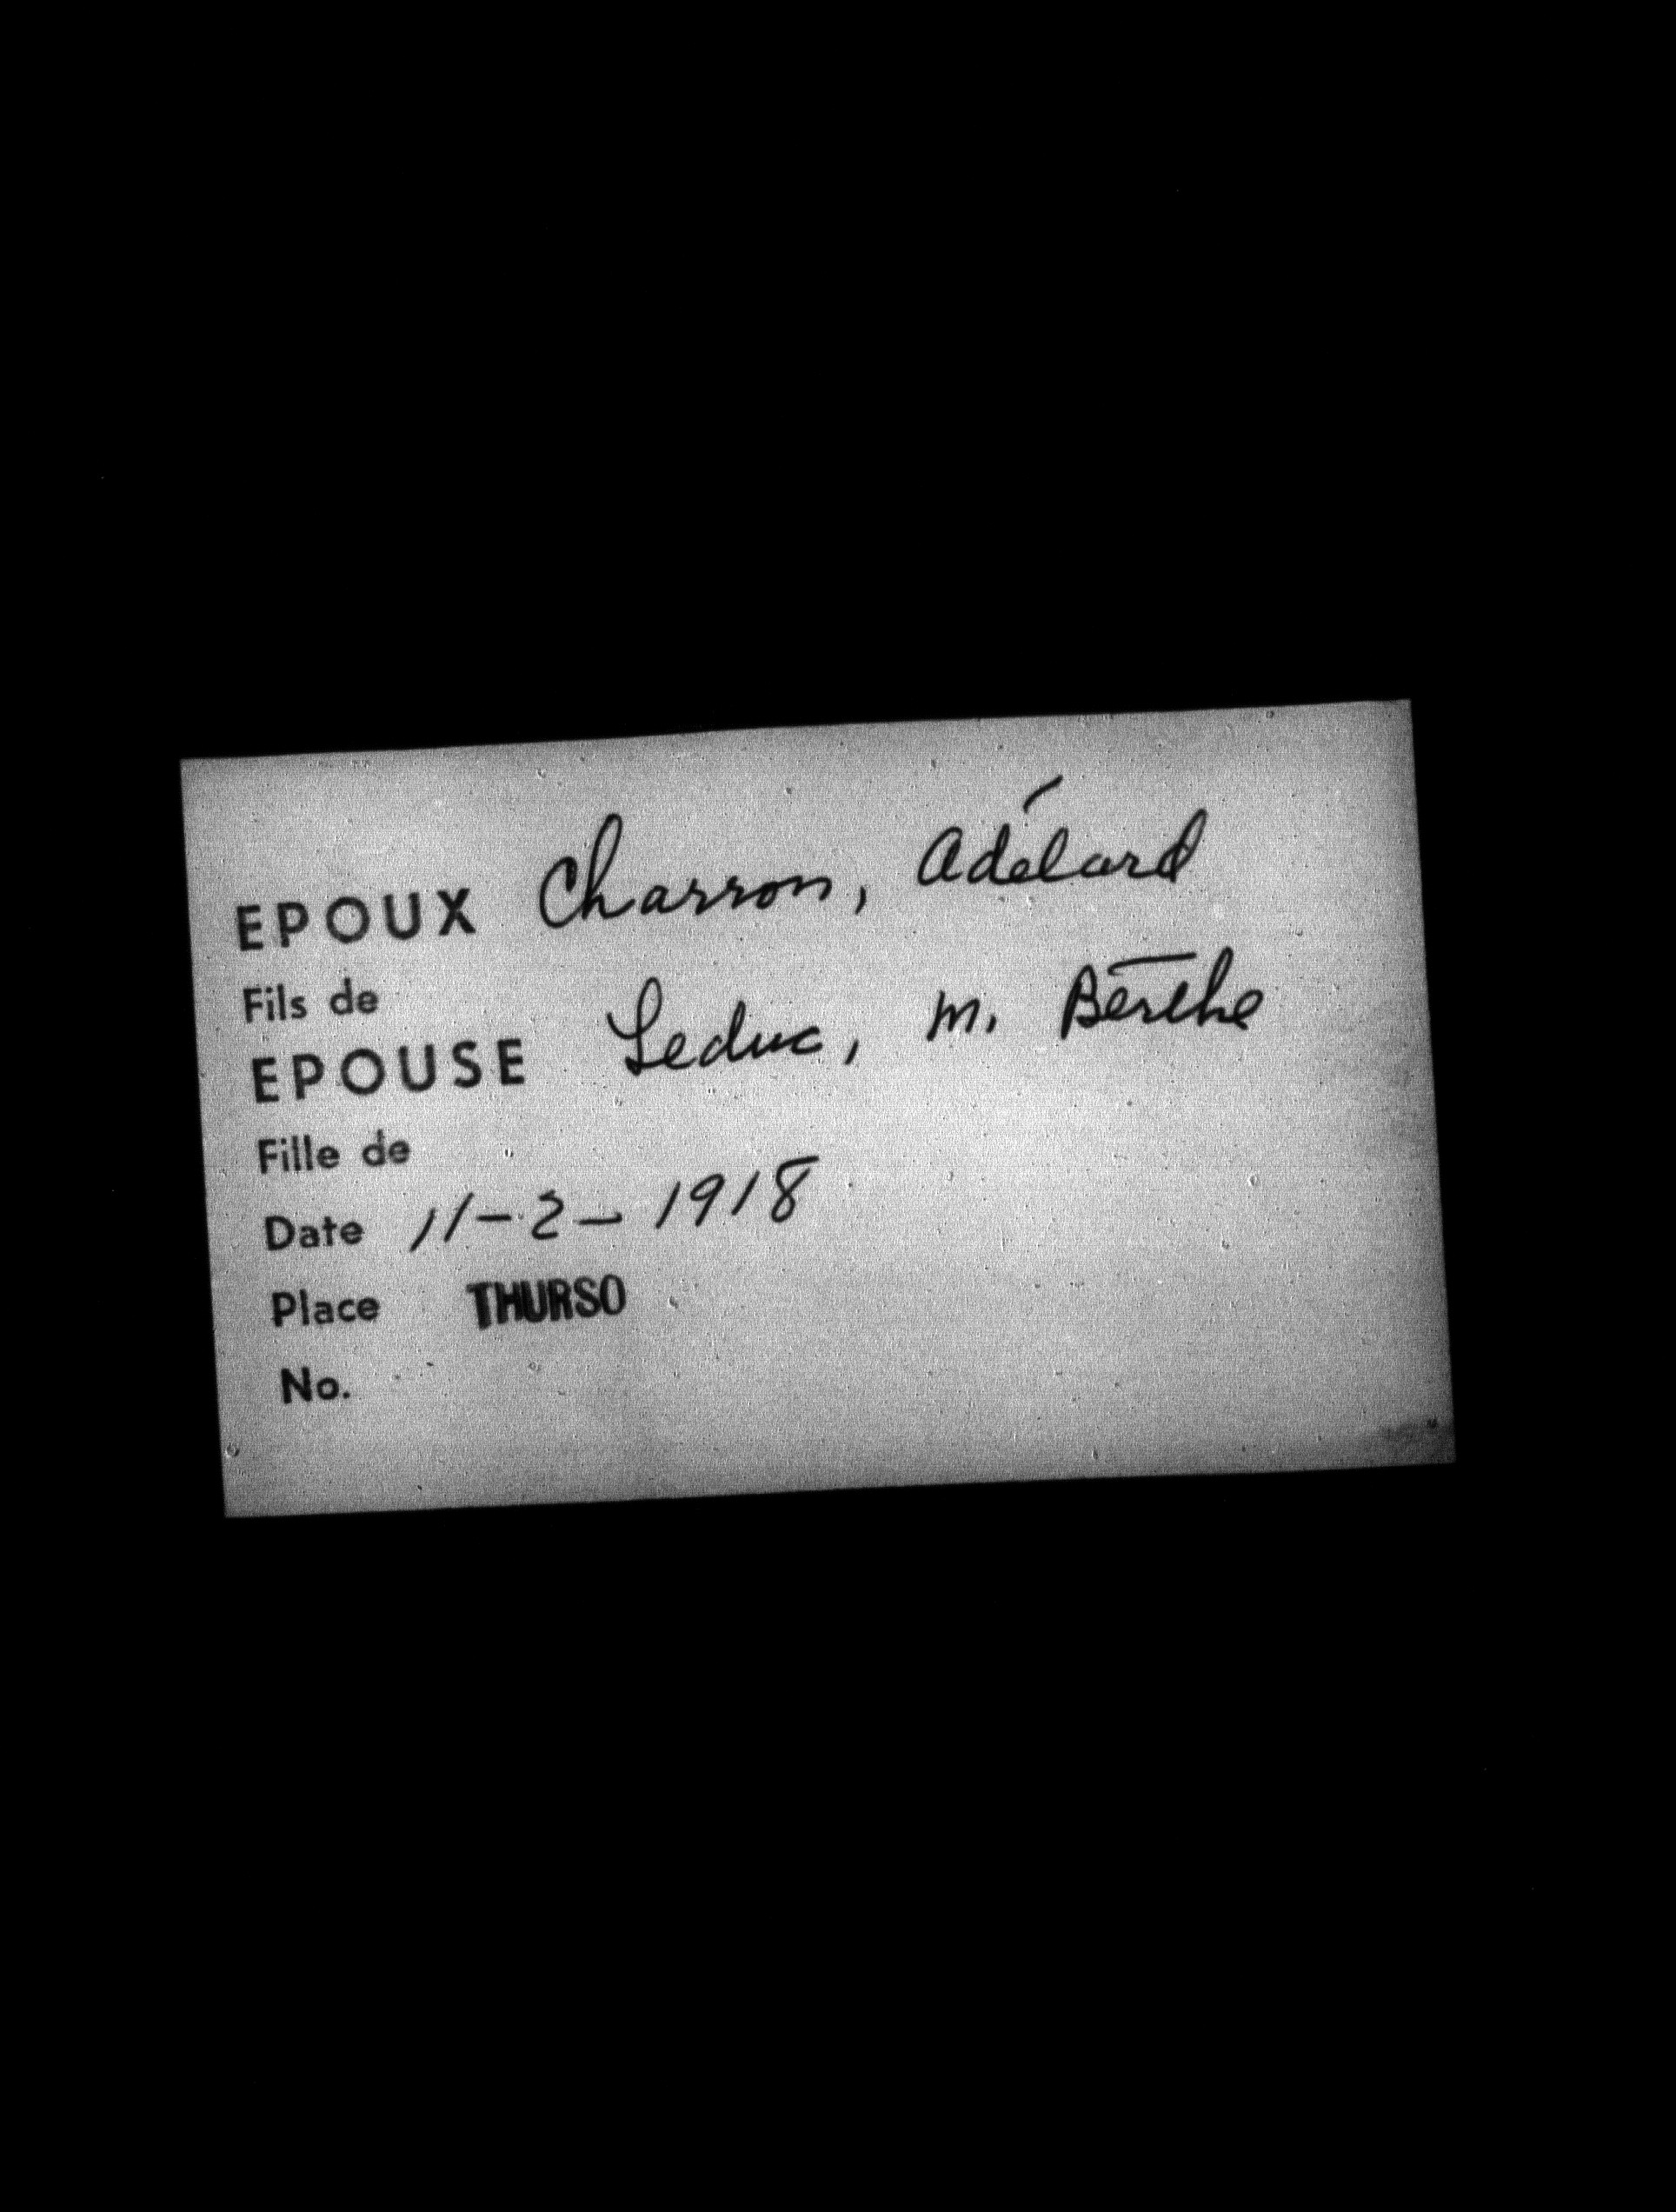 EPOUX Charron, Adélard
Fils de
EPOUSE Leduc, M. Berthe
Fille de
Date 11-2-1918
Place THURSO
No.